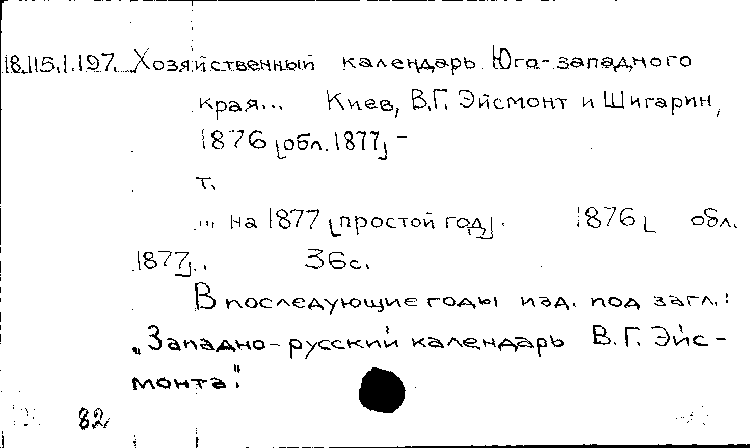 18.115.1.197. Хозяйственный календарь Юго-западного
края... Киев, В.Г. Эйсмонт и Шигарин,
1876 [обл. 1877] -
т.
... на 1877 [простой год]. 1876 [ обл.
1877]. 36с.
В последующие годы изд. под загл.:
„Западно-русский календарь В.Г. Эйс-
монта".
82